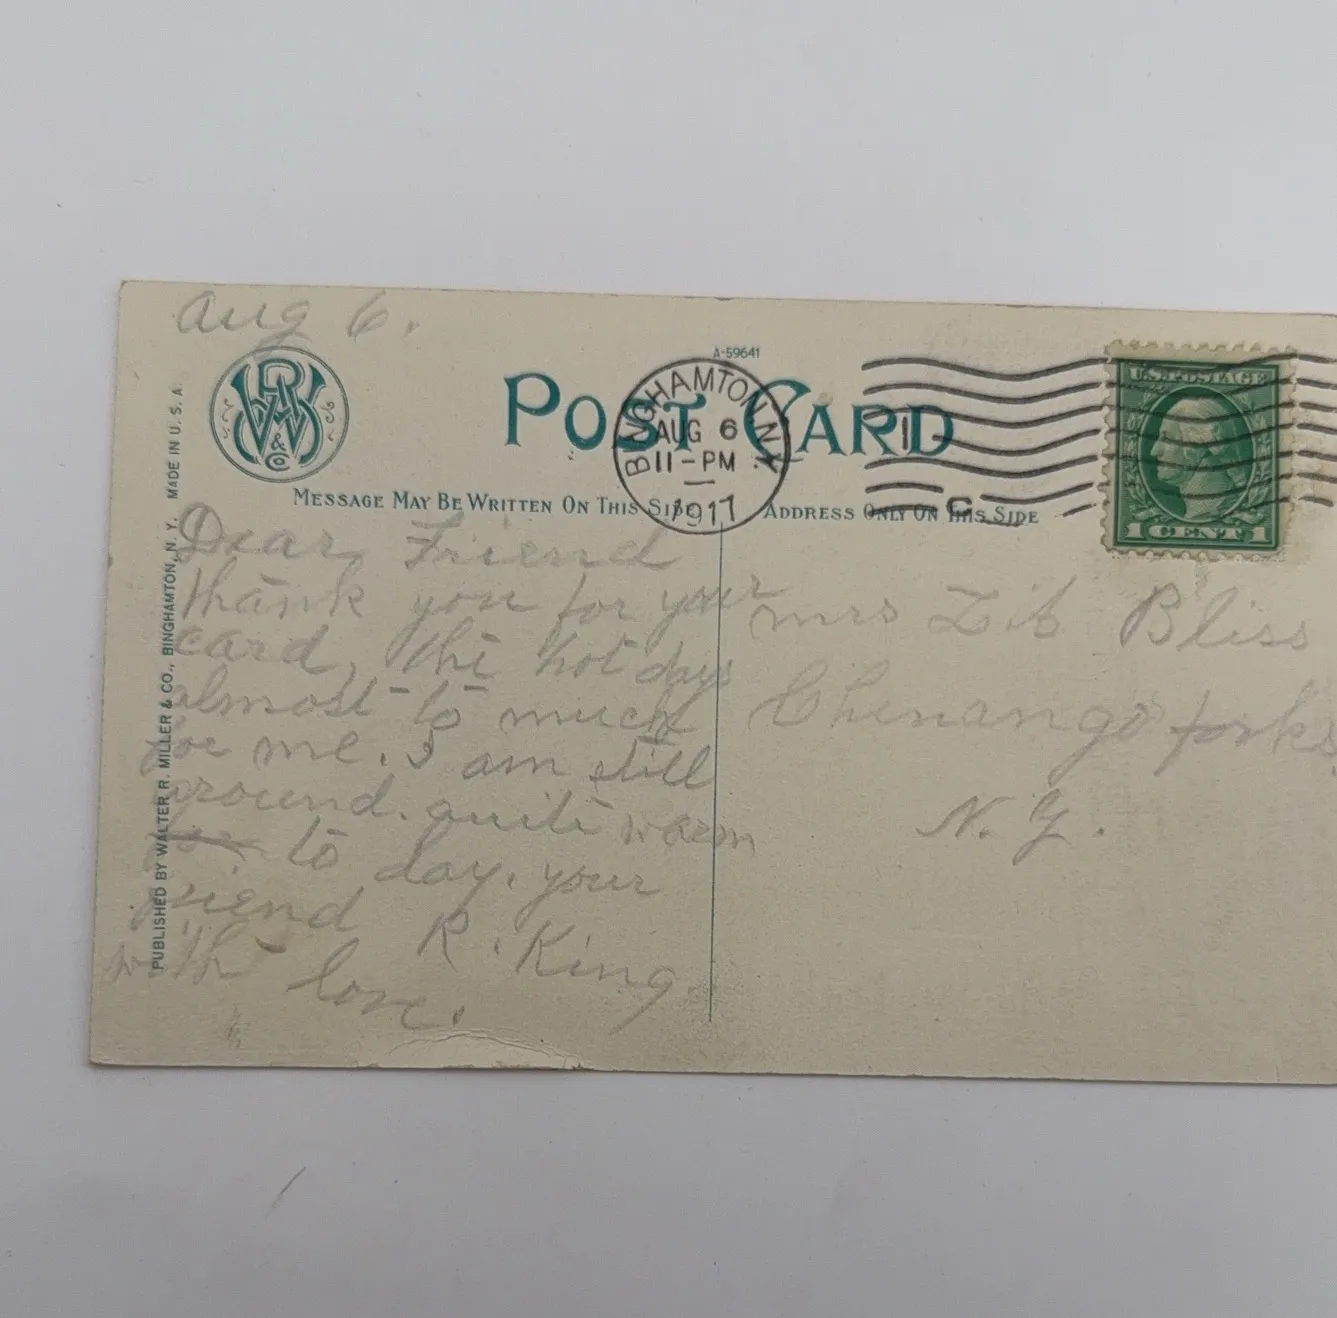 Aug 6.
A-59641
POST CARD
BINGHAMTON, N.Y.
AUG 6
11-PM
1917
1
C
U.S. POSTAGE
1 CENT 1
WRM & CO
MESSAGE MAY BE WRITTEN ON THIS SIDE
ADDRESS ONLY ON THIS SIDE
PUBLISHED BY WALTER R. MILLER & CO., BINGHAMTON, N. Y. MADE IN U. S. A.
Dear Friend
thank you for your
card, the hot days
almost to much
for me. I am still
around. quite warm
to day. your
friend R. King.
with love.
mrs Lib Bliss
Chenango forks
N. Y.